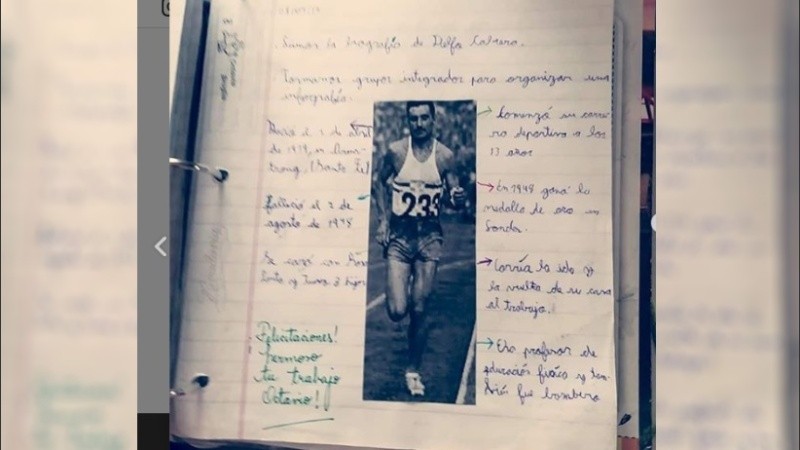 la biografía de Delfo Cabrera.
Formamos grupos integrados para organizar una
infografía.
Nació el 2 de abril
de 1919, en
Falleció el 2 de
agosto de
Se casó con
y tuvo 3 hijos
Comenzó su carre
ra deportiva a los
13 años
En 1948 ganó la
medalla de oro en
Londres.
Corría la ida y
la vuelta de su casa
al trabajo.
Era profesor de
educación física y tam
bién fue bombero
239
Felicitaciones!
hermoso
tu trabajo
Octavio!